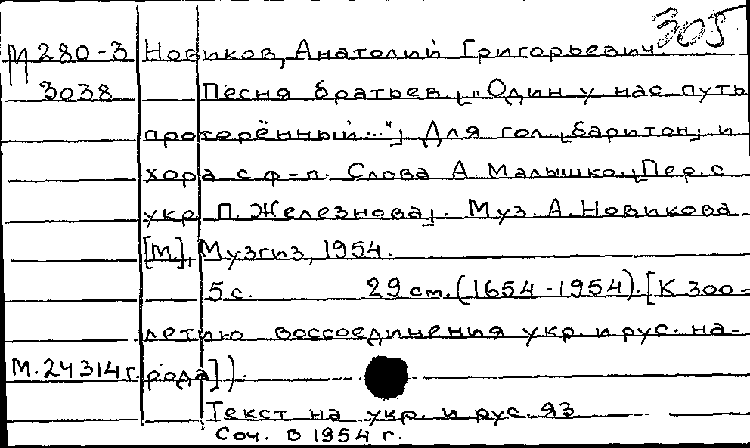 305
М 280-3 Новиков, Анатолий Григорьевич.
3038 Песня братьев. ["Один у нас путь
проторённый..."] Для гол. [баритон] и
хора с ф-п. Слова А Малышко. [Пер. с
укр П. Железнова]. Муз. А. Новикова
[М.], Музгиз, 1954.
5 с. 29 см. (1654-1954). [К 300-
летию воссоединения укр. и рус. на-
М. 24314 г. рода]).
Текст на укр. и рус. яз
Соч. в 1954 г.